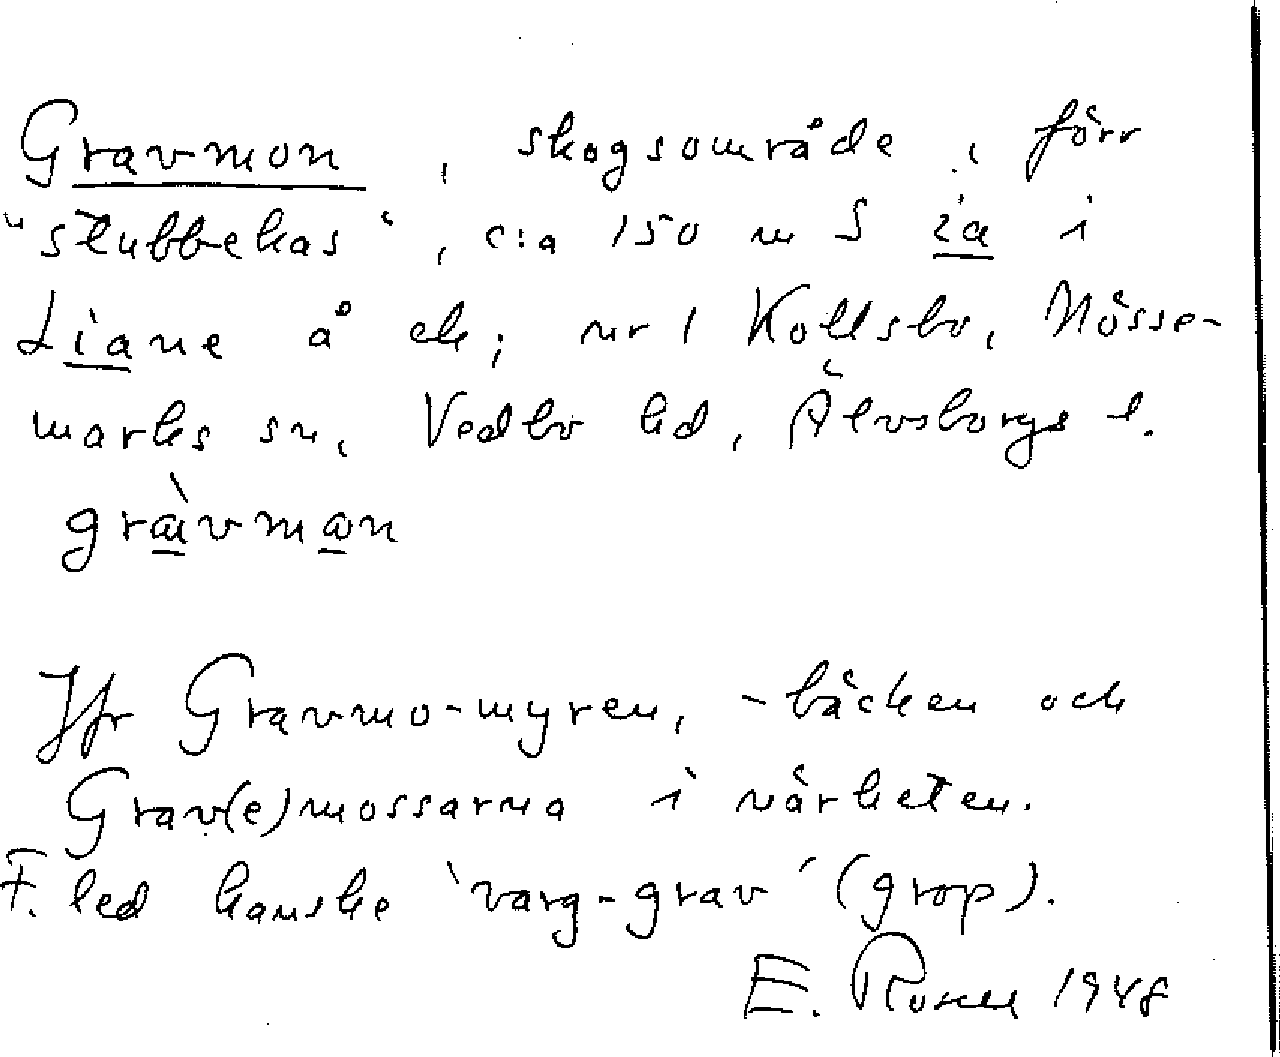 Gravmon, skogsområde, förr
"stubbekas", c:a 150 m S ia i
Liane å ek; nr 1 Kollsbo, Nösse-
marks sn, Vedbo hd, Älvsborgs l.
gràvmon
Jfr Gravmo-myren, -bäcken och
Grav(e)mossarna i närheten.
F. led kanske 'varg-grav' (grop).
E. 1948